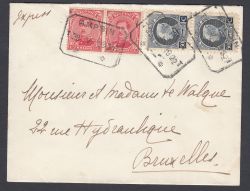 Express
Monsieur et madame de Walque
22 rue Hydraulique
Bruxelles